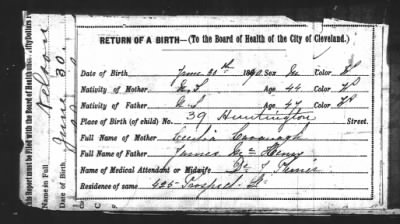 RETURN OF A BIRTH—(To the Board of Health of the City of Cleveland.)
Date of Birth June 30th 1890. Sex M Color W
Nativity of Mother U.S. Age 44 Color W
Nativity of Father U.S. Age 47 Color W
Place of Birth (of child) No. 39 Huntington Street.
Full Name of Mother Cecilia Cavanagh
Full Name of Father James McHenry
Name of Medical Attendant or Midwife Dr
Residence of same 425 Prospect St
This Report must be filed with the Board of Health
Name in Full Nelson
Date of Birth June 30.